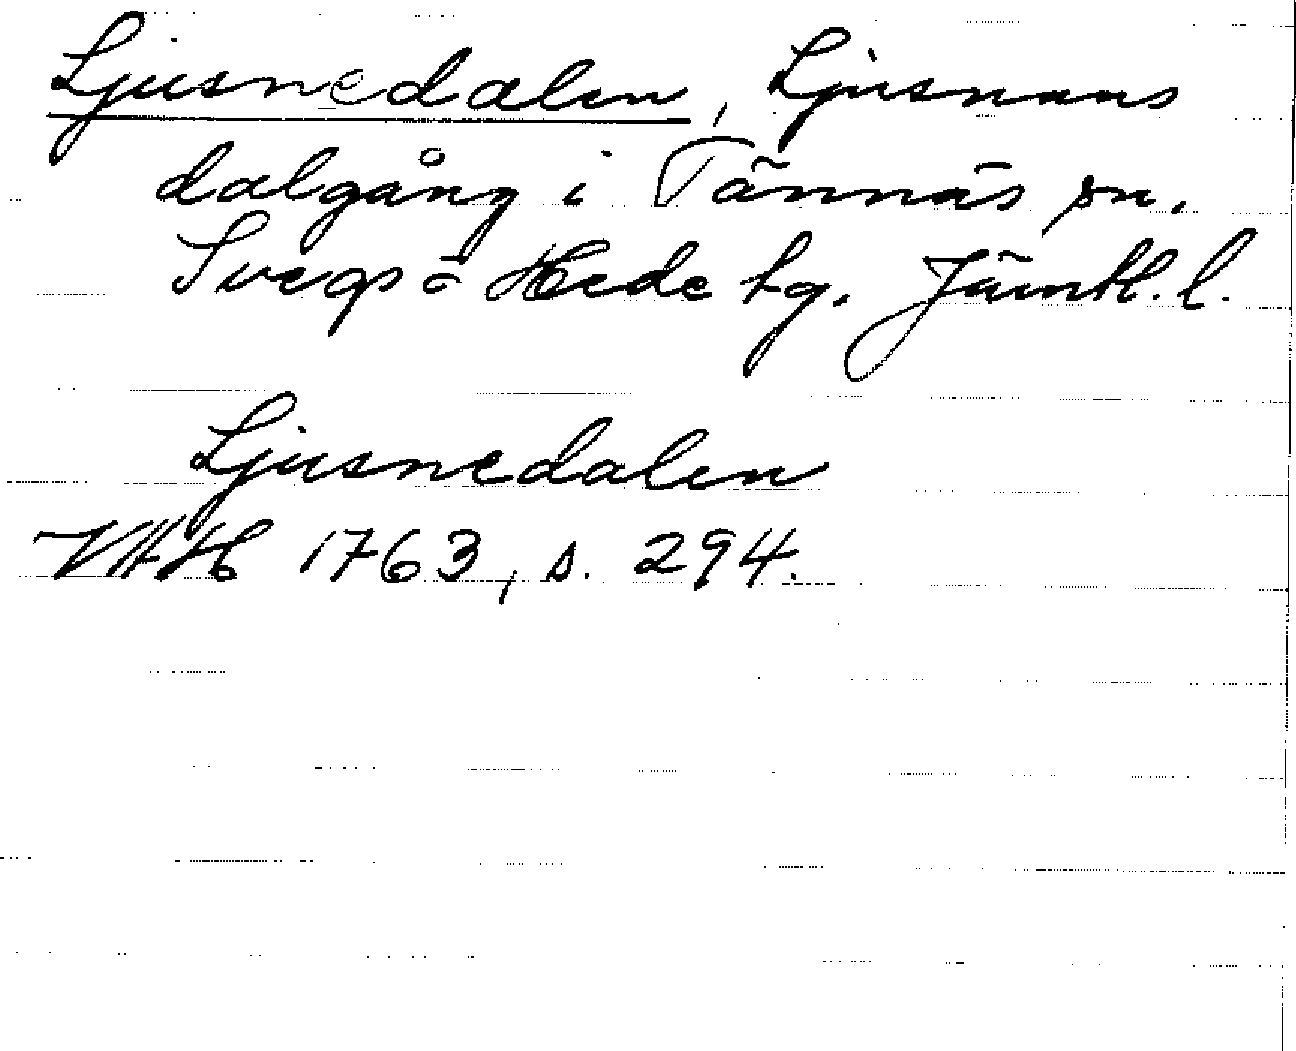 Ljusnedalen, Ljusnans
dalgång i Tännäs sn.
Svegs o Hede tg. Jämtl. l.
Ljusnedalen
VAH 1763, s. 294.